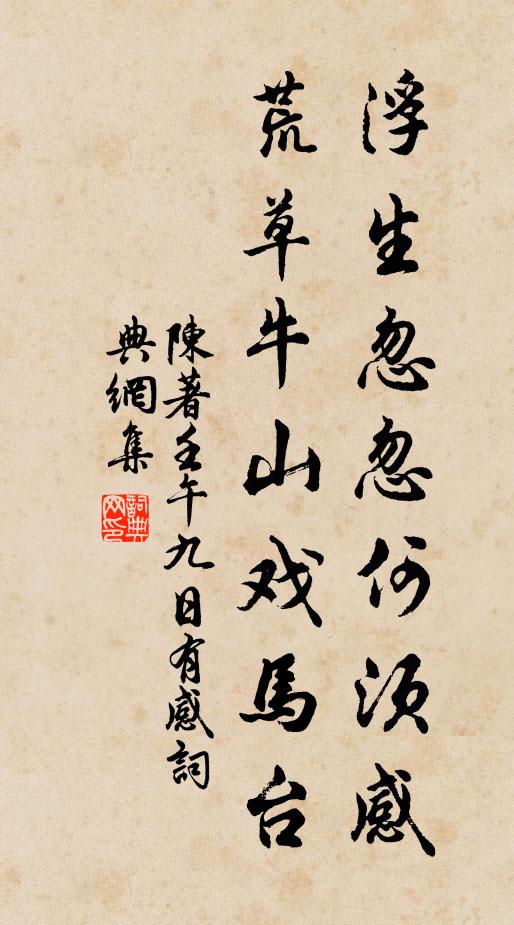 浮生忽忽何须感
荒草牛山戏馬台
陳著壬午九日有感詞
典網集
詞典网印